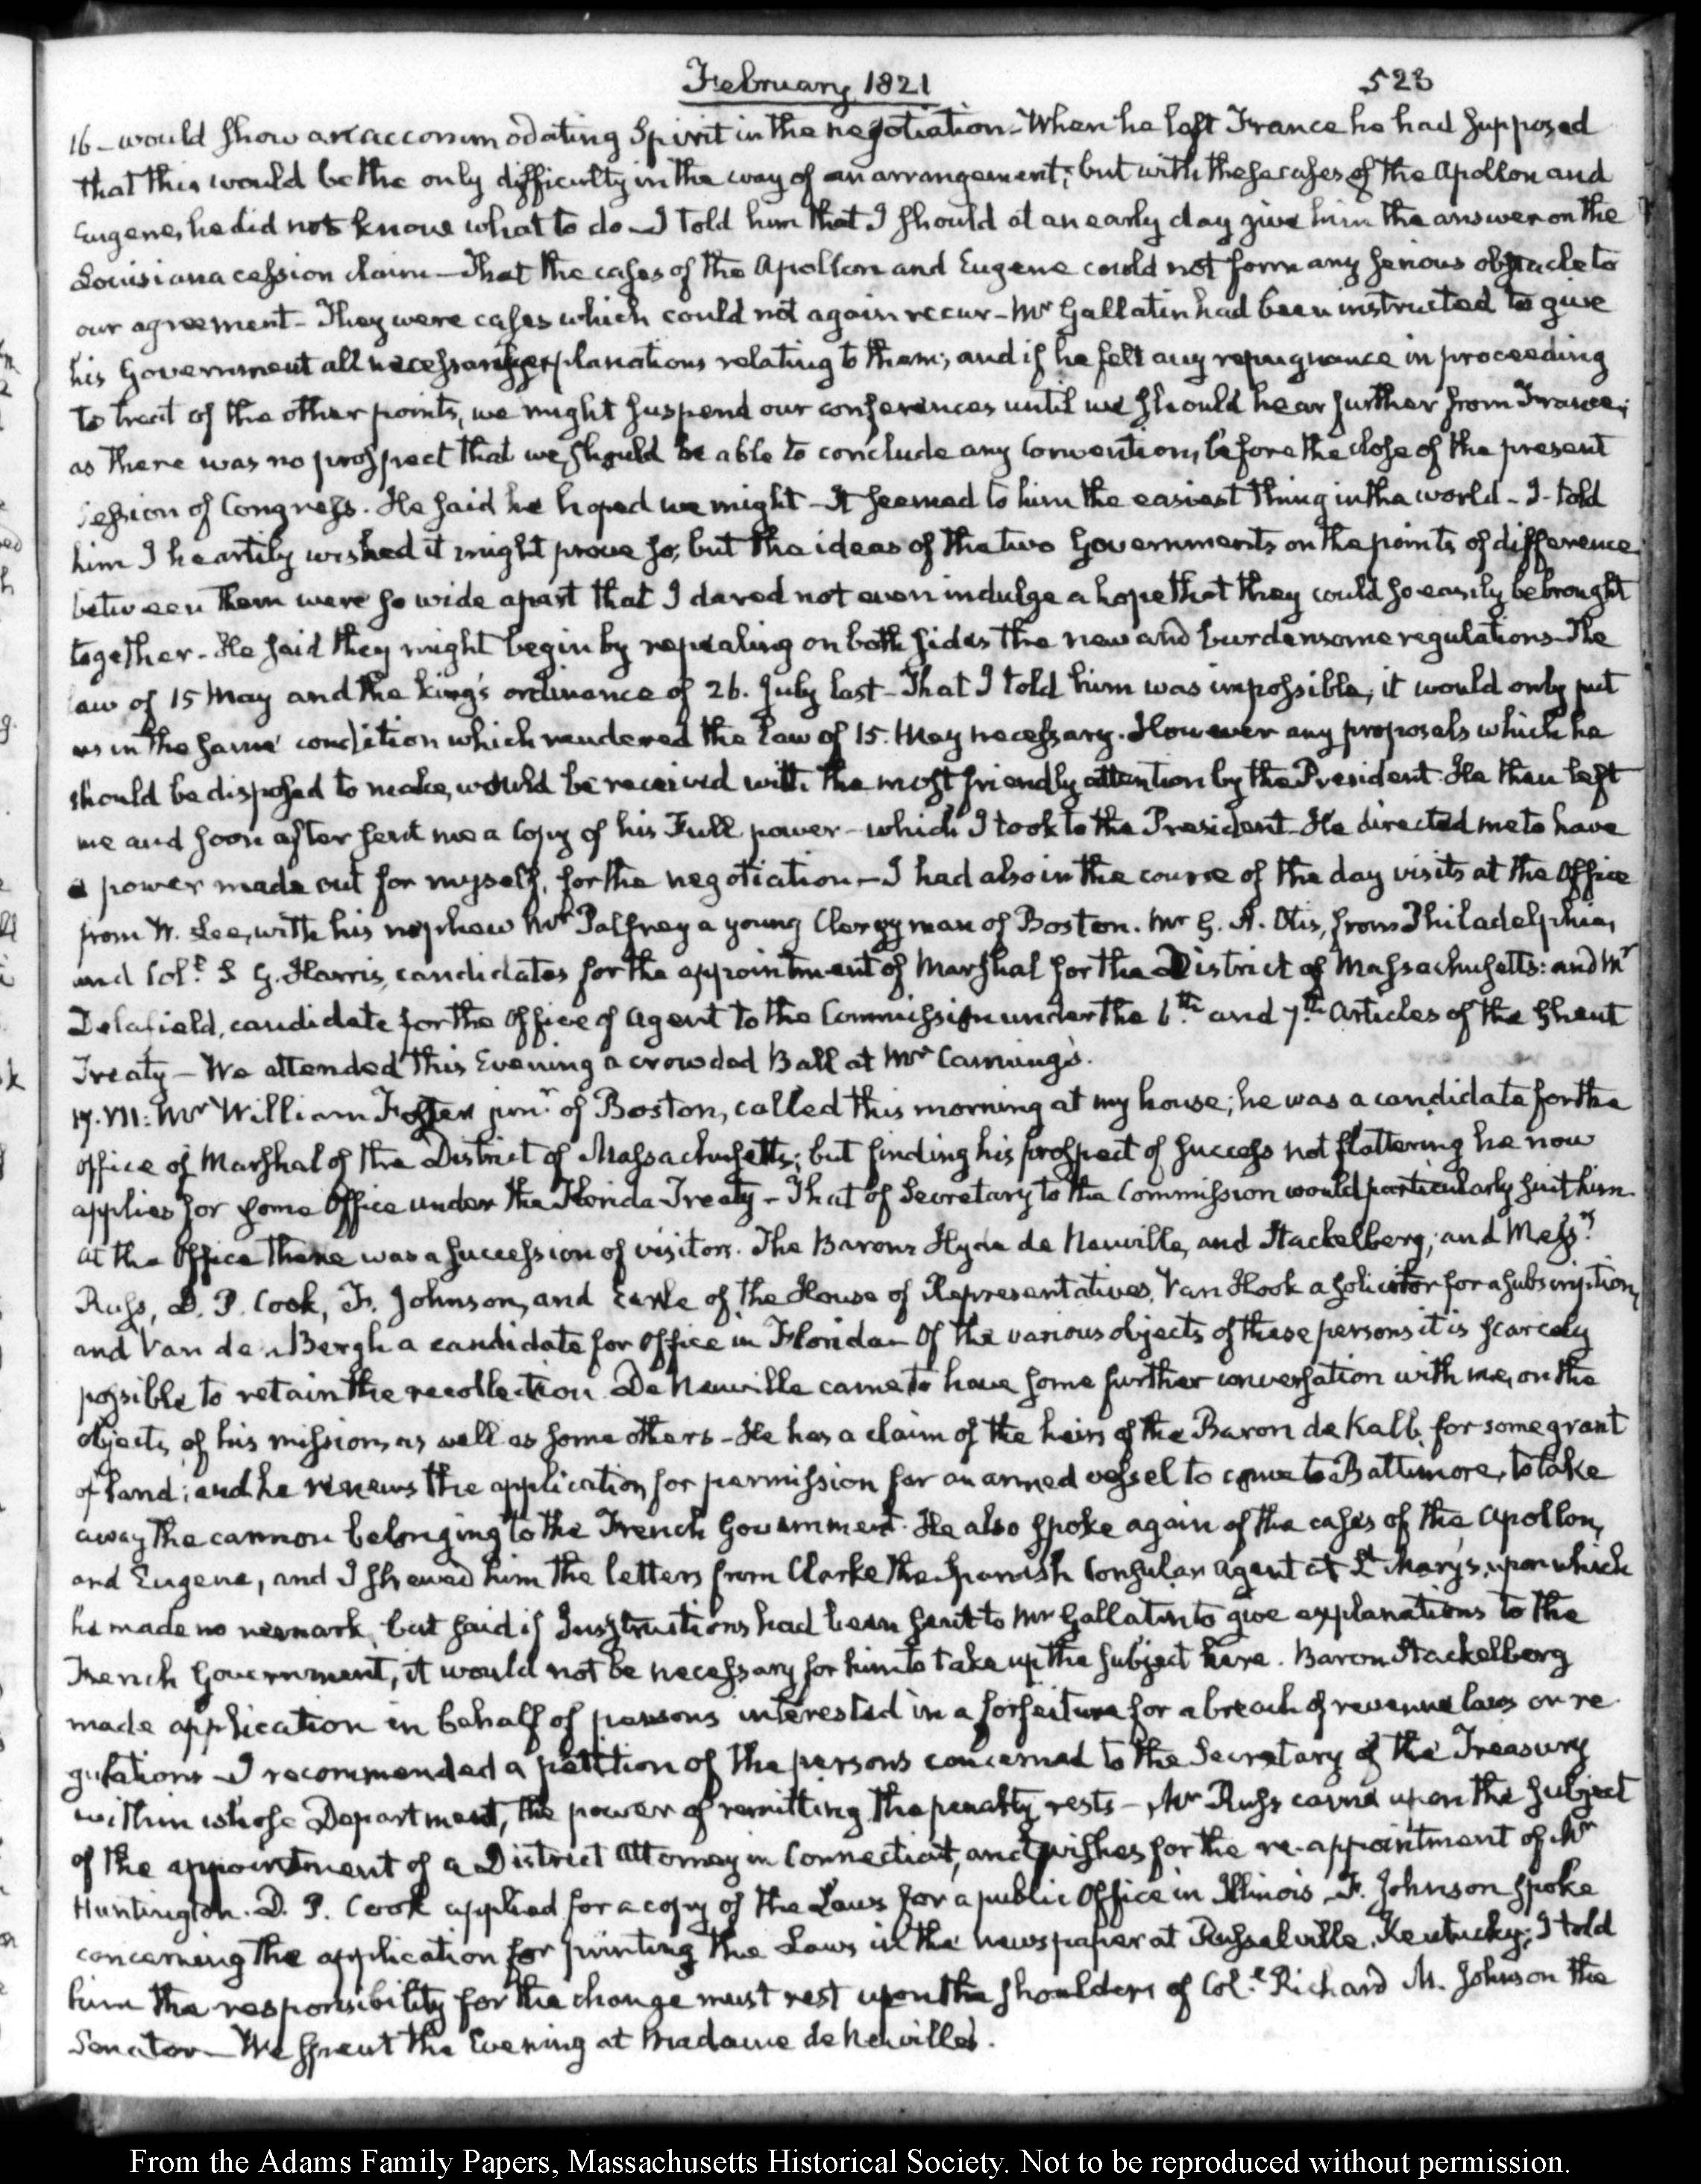 February 1821
523
16 — would show an accommodating Spirit in the negotiation — When he left France he had supposed
that this would be the only difficulty in the way of an arrangement; but with these cases of the Apollon and
Eugene, he did not know what to do — I told him that I should at an early day give him the answer on the
Louisiana cession claim — That the cases of the Apollon and Eugene could not form any serious obstacle to
our agreement — They were cases which could not again recur — Mr Gallatin had been instructed to give
his Government all necessary explanations relating to them; and if he felt any repugnance in proceeding
to treat of the other points, we might suspend our conferences until we should hear further from France;
as there was no prospect that we should be able to conclude any Convention, before the close of the present
Session of Congress. He said he hoped we might — It seemed to him the easiest thing in the world — I told
him I heartily wished it might prove so; but the ideas of the two Governments on the points of difference
between them were so wide apart that I dared not even indulge a hope that they could so easily be brought
together — He said they might begin by repealing on both sides the new and burdensome regulations — The
Law of 15 May and the king's ordinance of 26. July last — That I told him was impossible; it would only put
us in the same condition which rendered the Law of 15. May necessary. However any proposals which he
should be disposed to make, would be received with the most friendly attention by the President. He then left
me and soon after sent me a Copy of his Full power — which I took to the President. He directed me to have
a power made out for myself, for the negotiation — I had also in the course of the day visits at the Office
from W. Lee, with his nephew Mr Palfrey a young Clergyman of Boston. Mr G. A. Otis, from Philadelphia,
and Coll. S G. Harris, candidates for the appointment of Marshal for the District of Massachusetts: and Mr
Delafield, candidate for the Office of Agent to the Commission under the 6th and 7th Articles of the Ghent
Treaty — We attended this Evening a crowded Ball at Mr Canning's.
17. VII: Mr William Foster junr of Boston, called this morning at my house; he was a candidate for the
office of Marshal of the District of Massachusetts; but finding his prospect of success not flattering he now
applies for some Office under the Florida Treaty — That of Secretary to the Commission would particularly suit him.
At the Office there was a succession of visitors. The Barons Hyde de Neuville, and Stackelberg; and Messrs
Russ, D. P. Cook, F. Johnson, and Earle of the House of Representatives, Van Hook a solicitor for a subscription,
and Van den Bergh a candidate for Office in Florida — Of the various objects of these persons it is scarcely
possible to retain the recollection. De Neuville came to have some further conversation with me, on the
objects of his mission, as well as some others — He has a claim of the heirs of the Baron de Kalb, for some grant
of Land; and he renews the application for permission for an armed vessel to come to Baltimore, to take
away the cannon belonging to the French Government. He also spoke again of the cases of the Apollon,
and Eugene, and I shewed him the letters from Clarke the Spanish Consular Agent at St Mary's, upon which
he made no remark, but said if Instructions had been sent to Mr Gallatin to give explanations to the
French Government, it would not be necessary for him to take up the subject here. Baron Stackelberg
made application in behalf of persons interested in a forfeiture for a breach of revenue laws or re
gulations — I recommended a petition of the persons concerned to the Secretary of the Treasury
within whose Department, the power of remitting the penalty rests — Mr Russ came upon the subject
of the appointment of a District Attorney in Connecticut, and wishes for the re-appointment of Mr
Huntington. D. P. Cook applied for a copy of the Laws for a public Office in Illinois. F. Johnson spoke
concerning the application for printing the Laws in the newspaper at Russelville, Kentucky; I told
him the responsibility for the change must rest upon the shoulders of Coll. Richard M. Johnson the
Senator — We spent the Evening at Madame de Neuville's.
From the Adams Family Papers, Massachusetts Historical Society. Not to be reproduced without permission.